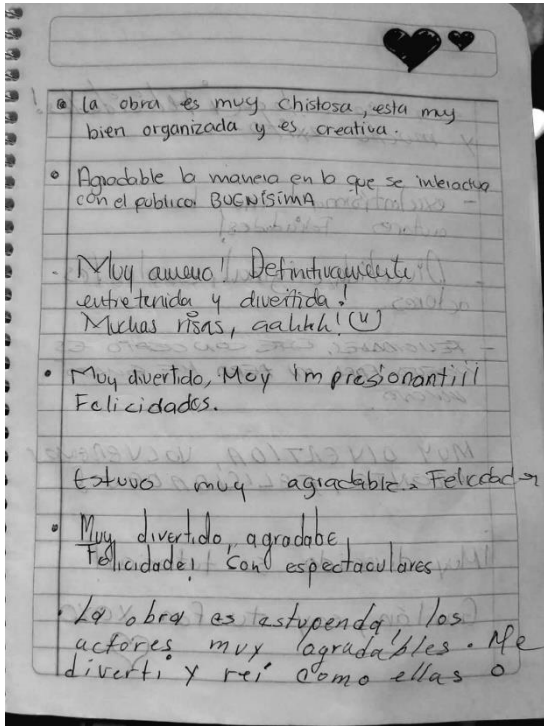 la obra es muy chistosa, esta muy
bien organizada y es creativa.
Agradable la manera en la que se interactua
con el publico! BUENíSIMA
Muy ameno! Definitivamente
entretenida y divertida!
Muchas risas, aahhh!
Muy divertido, Muy impresionantiii
Felicidades.
Estuvo muy agradable. Felicidad
Muy divertido, agradabe,
Felicidade! Son espectaculares
La obra es estupenda, los
actores muy agradables. Me
diverti y rei como ellas o